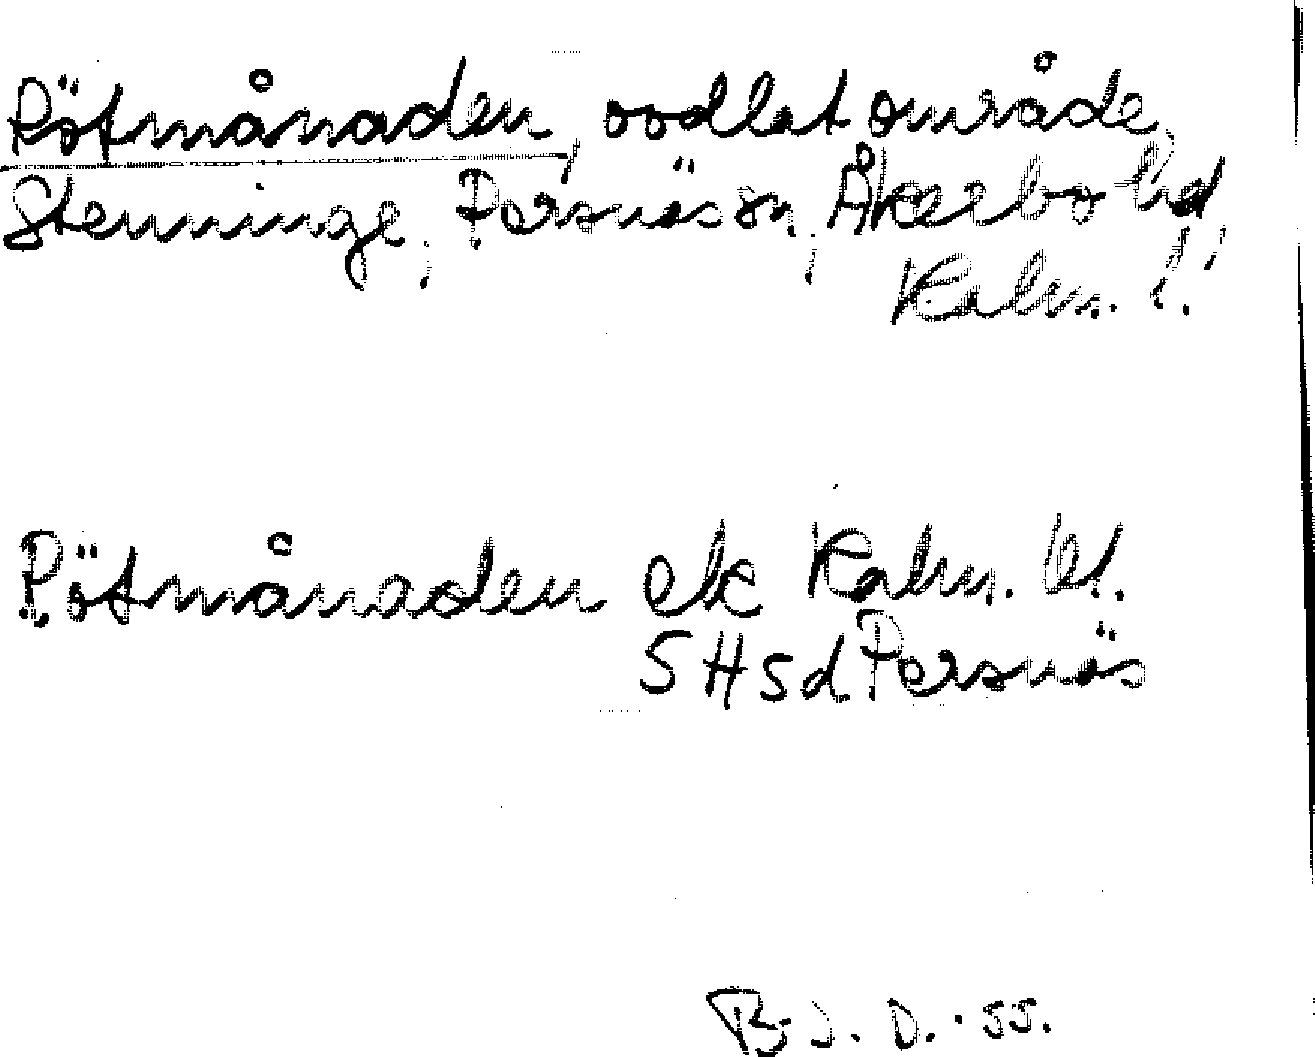 Rötmånaden, oodlat område,
Stenninge, Persnäs sn, Åkerbo hd,
Kalm. l.
Rötmånaden ek Kalm. l.
SHSd Persnäs
B. J. D. -55.